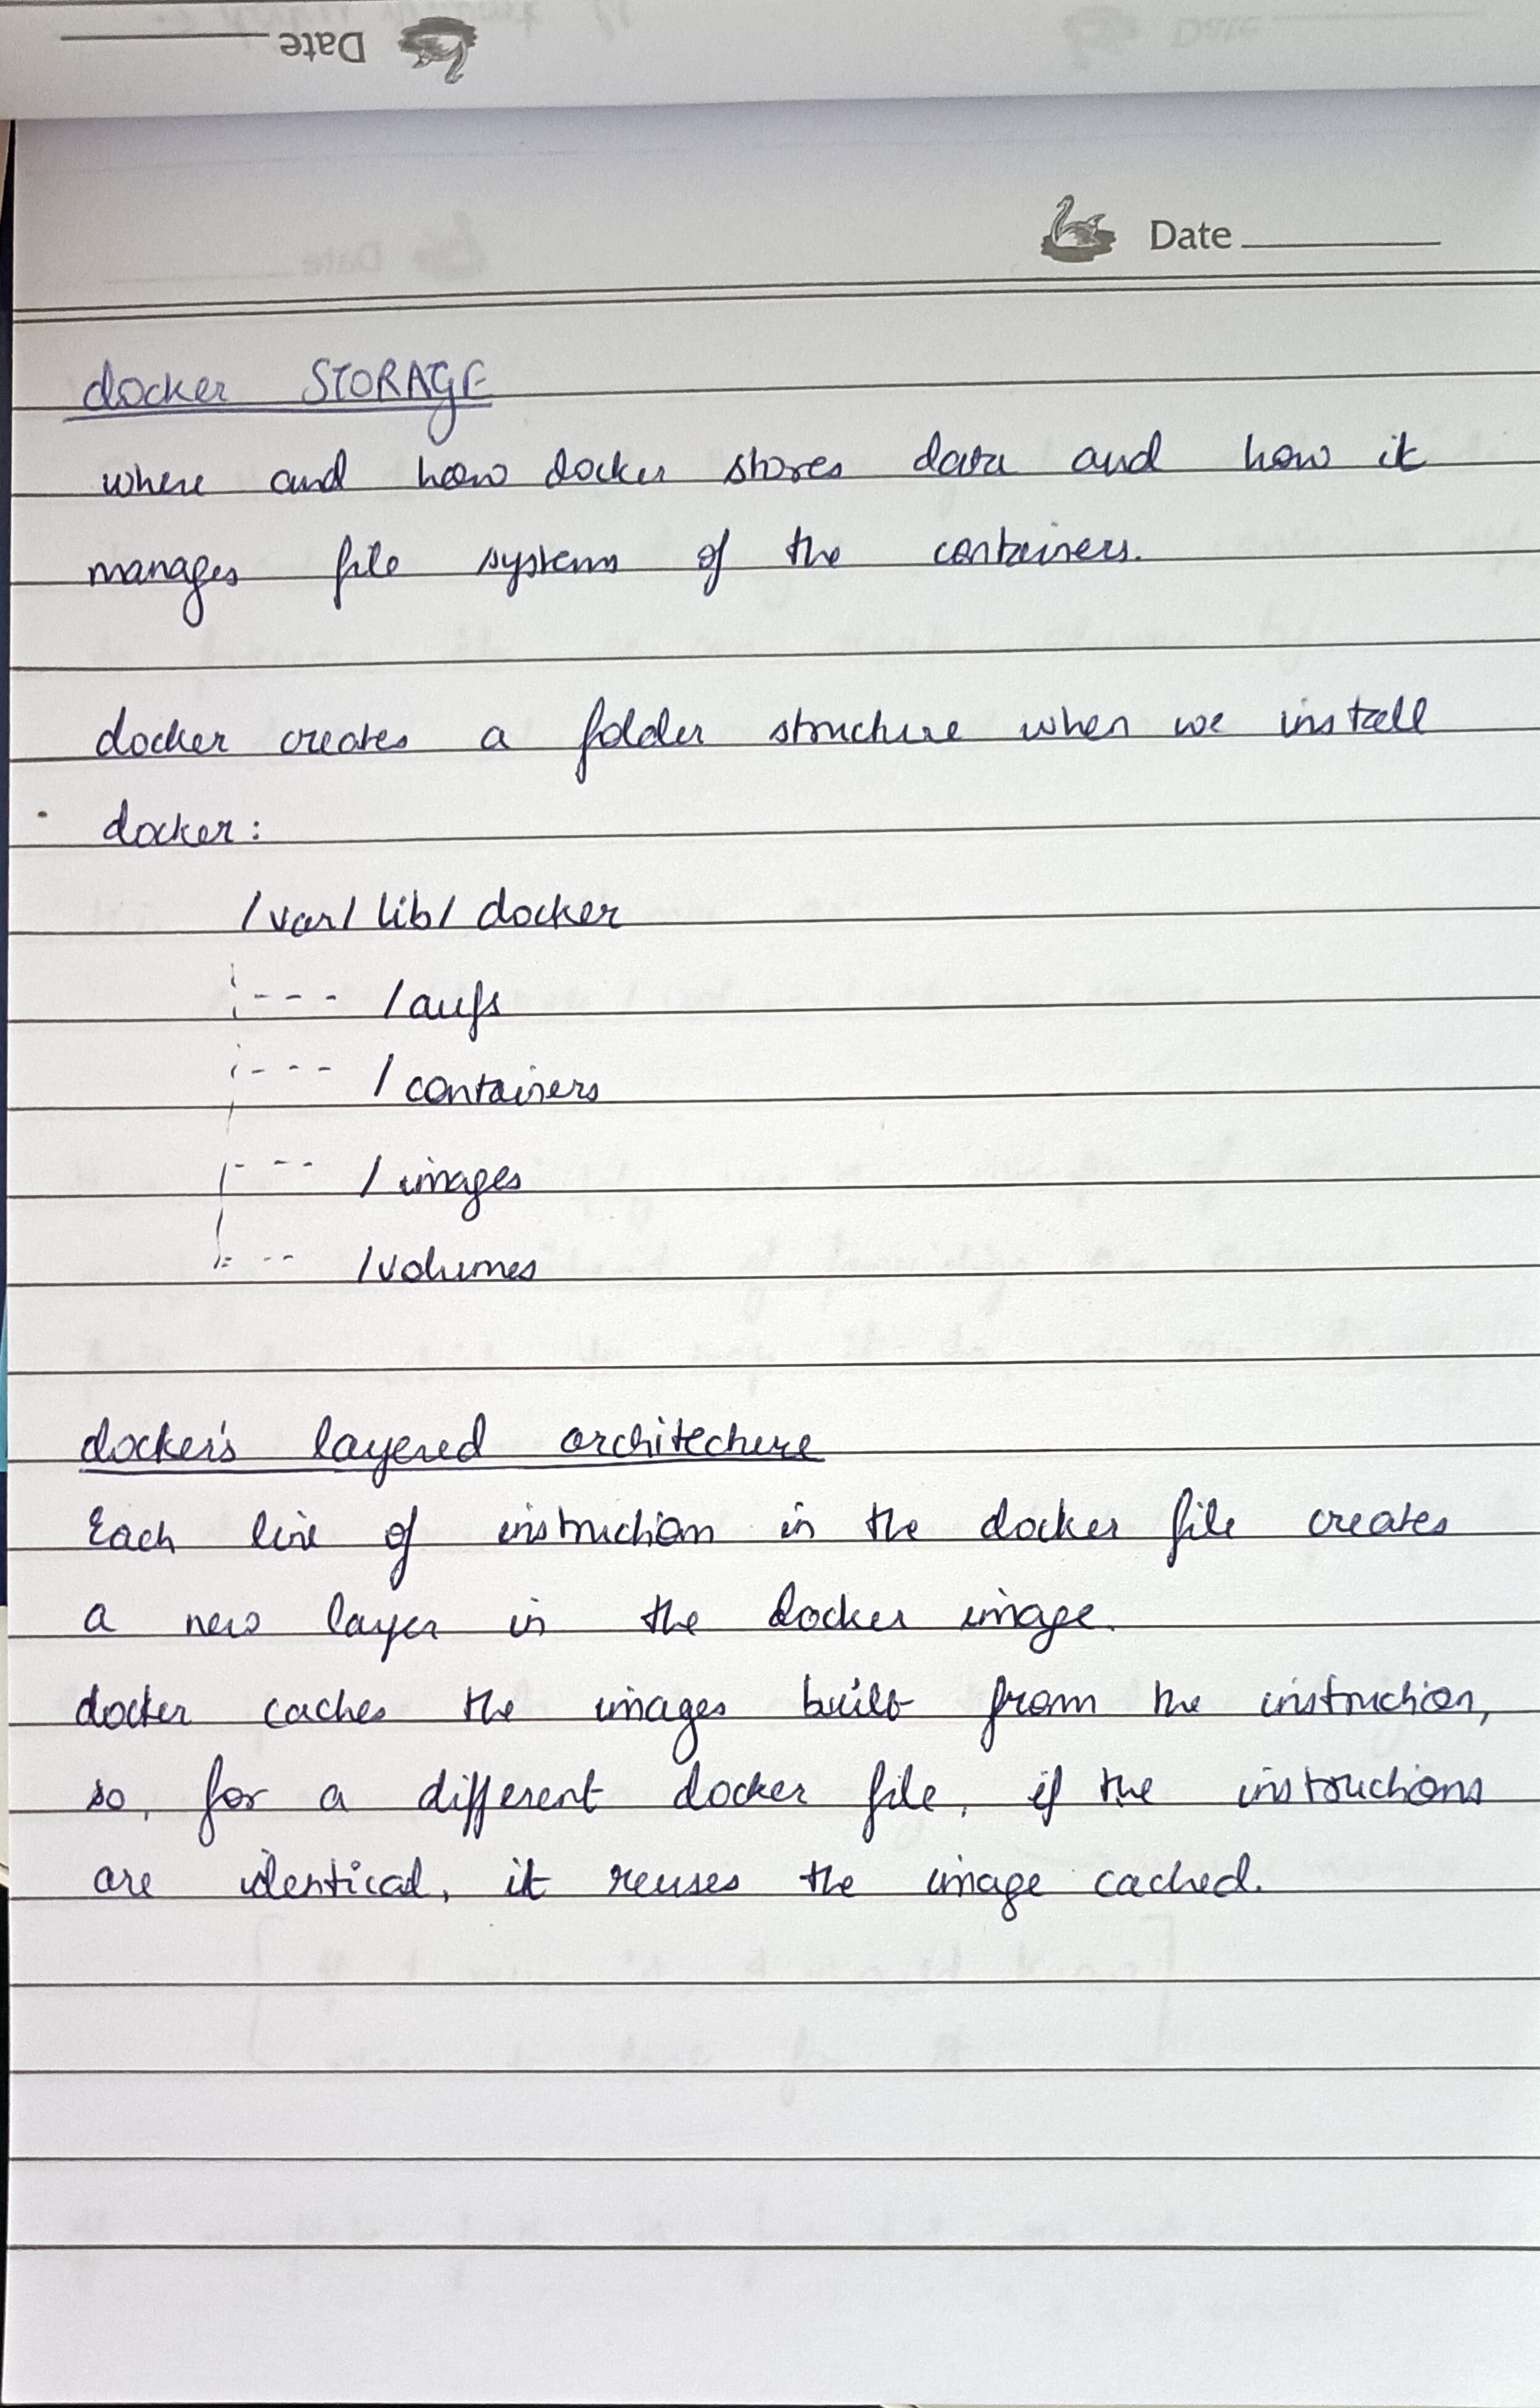 Date
Date
docker STORAGE
where and how docker stores data and how it
manages file systems of the containers.
docker creates a folder structure when we install
docker:
/var/ lib/ docker
/aufs
/ containers
/ images
/volumes
docker's layered architecture
Each line of instruction in the docker file creates
a new layer in the docker image.
docker caches the images built from the instruction,
so, for a different docker file, if the instructions
are identical, it reuses the image cached.